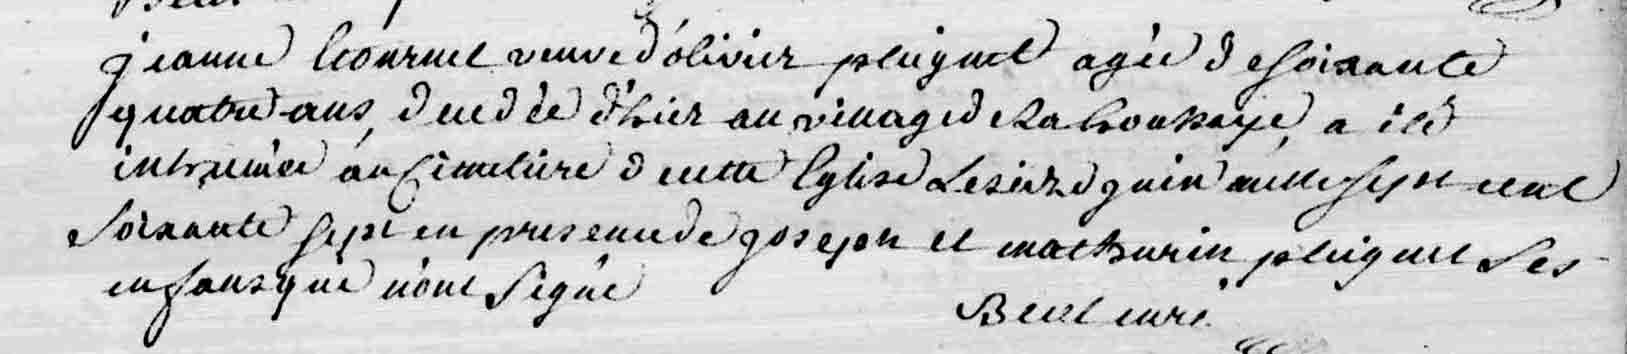 jeanne veuve d'olivier pluignet agée de soixante
quatre ans, decedée d'hier au village de la houssaye, a été
inhumée au cimetiere de cette Eglise Le seize juin mille sept cent
soixante sept en presence de joseph et mathurin pluignet ses
enfans qui n'ont signé
curé